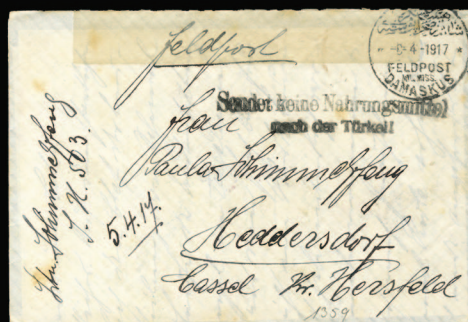 Feldpost
-6-4-1917
FELDPOST
MIL.MISS.
DAMASKUS
Sendet keine Nahrungsmittel
nach der Türkei!
Frau
Paula Schimmelpfang
Heddersdorf
Cassel Kr. Hersfeld
1359
Schimmelpfang
503.
5.4.17.